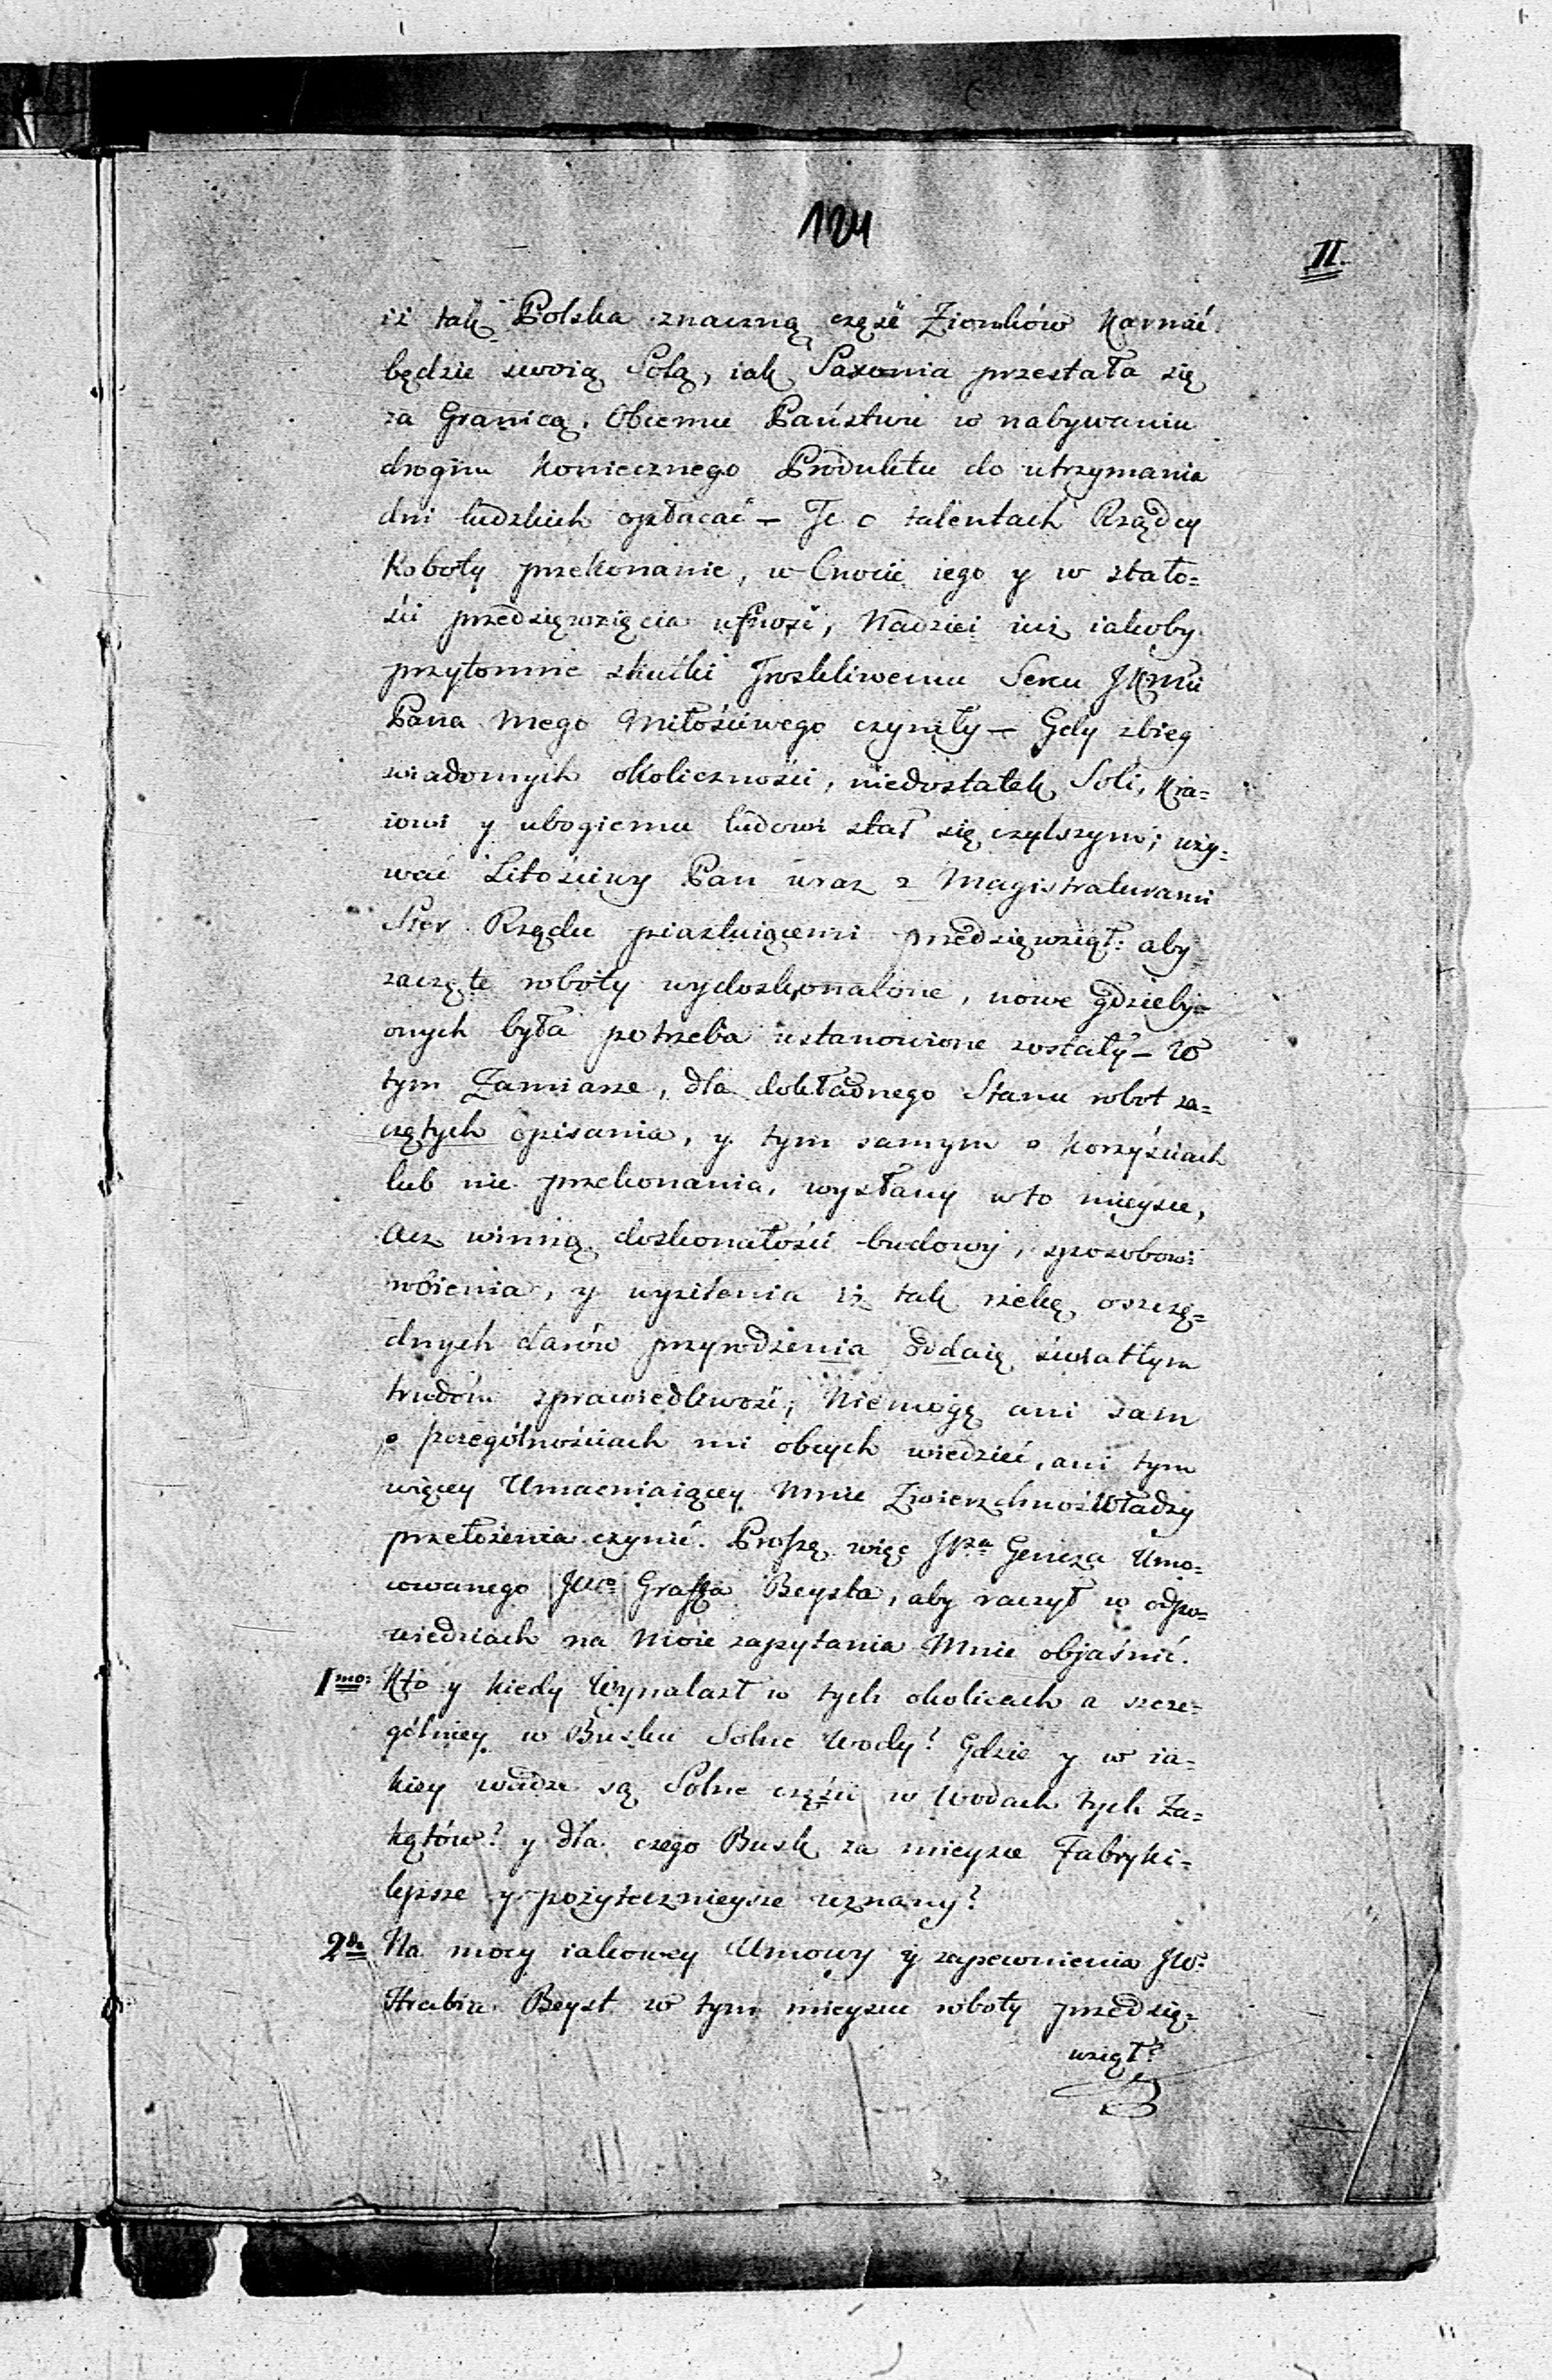 124
II.
iż tak Polska znaczną część Ziomków Karmić
będzie swoią Solą, iak Saxonia przestała się
za Granicą, Obcemu Państwu w nabywaniu
drogim Koniecznego Produktu do utrzymania
dni ludzkich opłacać — Te o talentach Rządcy
Roboty przekonanie, w Cnocie iego y w stało=
ści przedsięwzięcia ufność, Nadziei iuż iakoby
przytomne skutki Troskliwemu Sercu JKMci
Pana Mego Miłościwego czyniły — Gdy zbieg
wiadomych okoliczności, niedostatek Soli, Kra=
iowi y ubogiemu ludowi stał się czylszym; uży=
wać Litościwy Pan wraz z Magistraturami
Ster Rządu piastuiącemi przedsięwziął: aby
zaczęte roboty wydoskonalone, nowe gdzieby=
onych była potrzeba ustanowione zostały — W
tym Zamiarze, dla dokładnego Stanu robot za=
czętych opisania, y tym samym o Korzyściach
lub nie przekonania, wysłany w to mieysce,
Acz winną doskonałości budowy, sposobowi
robienia, y wysilenia iż tak rzekę oszczę=
dnych darów przyrodzenia oddaię światłym
trudom sprawiedliwość, Niemogę ani sam
o szczególnościach mi obcych wiedzieć, ani tym
więcey Umacniaiącey Mnie Zwierzchność Władzy
przełożenia czynić. Proszę więc JPa Gensza Umo=
cowanego JWo Graffa Beysta, aby raczył w odpo=
wiedziach na Moie zapytania Mnie objaśnić.
1mo: Kto y kiedy Wynalazł w tych okolicach a szcze=
gólniey w Busku Solne Wody? Gdzie y w ia=
kiey wadze są Solne części w Wodach tych Za=
kątów? y dla czego Busk za mieysce Fabryki=
lepsze y pożytecznieysze uznany?
2do Na mocy iakowey Umowy y zapewnienia JW:
Hrabia Beyst w tym mieyscu roboty przedsię=
wziął?